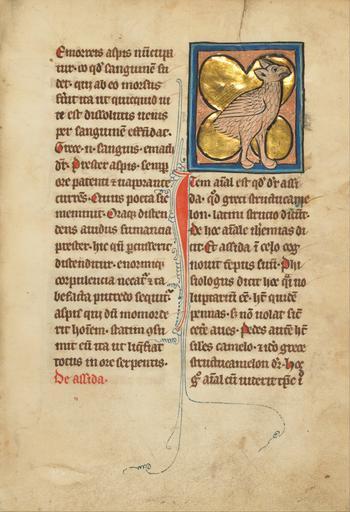 Emorreis aspis nūcupa
tur. eo qđ sanguinē su
det. qui ab eo morsus
fuerit ita ut quicquid ui
te est dissolutis uenis
per sanguinē effundat.
Grece. n. sanguis. emath
dr̄. Prester aspis. semp
ore patenti ⁊ uaporante
currēs. Cuius poeta sic
meminit. Oraq; disten
dens auidus fumantia
prester. hic quē percusserit
distenditur. enormiq;
corpulencia necat᷑ ⁊ ta
befacta putredo sequit᷑
aspis qui dū momorde
rit hoīem. statim ɔsu
mit eū ita ut liq̄fiat
totus in ore serpentis.
De assida.
Item aīal est qđ dr̄ assi
da. qđ greci strutiocame
lon. latini strucio dicūt.
De hoc aīale iheremias di
cit. Et assida ī celo cog
nouit tēpus suū. Phi
siologus dicit hec qī uo
luptariū eē. h̄t quidē
pennas. s; nō uolat sic̄
cetē aues. Pedes autē h̄t
siles camelo. ⁊ iō grece
strutiocamelon dr̄. hoc
g̊ aīal cū uiderit tp̄c ī